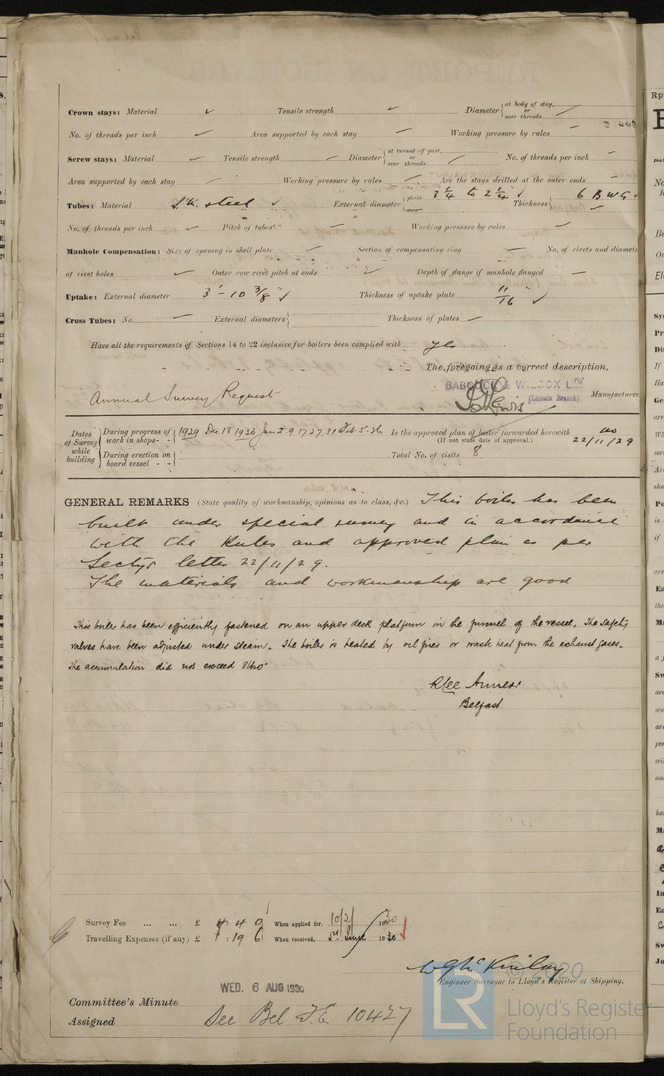 Crown stays: Material ✓ Tensile strength ✓ Diameter { at body of stay, or over threads.
No. of threads per inch Area supported by each stay Working pressure by rules
Screw stays: Material Tensile strength Diameter { at turned off part, or over threads No. of threads per inch
Area supported by each stay Working pressure by rules Are the stays drilled at the outer ends
Tubes: Material steel ✓ External diameter { plain 3 1/4 to 2 1/4" ✓ Thickness 6 B W G ✓
No. of threads per inch Pitch of tubes Working pressure by rules
Manhole Compensation: Size of opening in shell plate Section of compensating ring No. of rivets and diamete
of rivet holes Outer row rivet pitch at ends Depth of flange if manhole flanged
Uptake: External diameter 3'-10 3/8" ✓ Thickness of uptake plate 11/16" ✓
Cross Tubes: No. External diameters { Thickness of plates
Have all the requirements of Sections 14 to 22 inclusive for boilers been complied with yes
The foregoing is a correct description,
BABCOCK & WILCOX Ltd
(Lincoln Branch) Manufacturer
Annual Survey Request
Dates of Survey while building { During progress of work in shops - - { 1929 Dec 18 1930 Jan 2 9 17 27 31 Feb 5. Is the approved plan of boiler forwarded herewith no
(If not state date of approval.) 22/11/29
During erection on board vessel - - - Total No. of visits 8
GENERAL REMARKS (State quality of workmanship, opinions as to class, &c.) This boiler has been
built under special survey and in accordance
with the Rules and approved plan as per
Secty's letter 22/11/29.
The materials and workmanship are good
This boiler has been efficiently fastened on an upper deck platform in the funnel of the vessel. The safety
valves have been adjusted under steam. The boiler is heated by oil fires or waste heat from the exhaust gases.
The accumulation did not exceed
Belfast
Survey Fee ... ... £ 4 4 0 When applied for, 10/2/ 1930
Travelling Expenses (if any) £ 1 : 19 6 When received, 1930
W G McKinlay
Engineer Surveyor to Lloyd's Register of Shipping.
WED. 6 AUG 1930
Committee's Minute
Assigned See Bel F.E 10427
LR
Lloyd's Register
Foundation